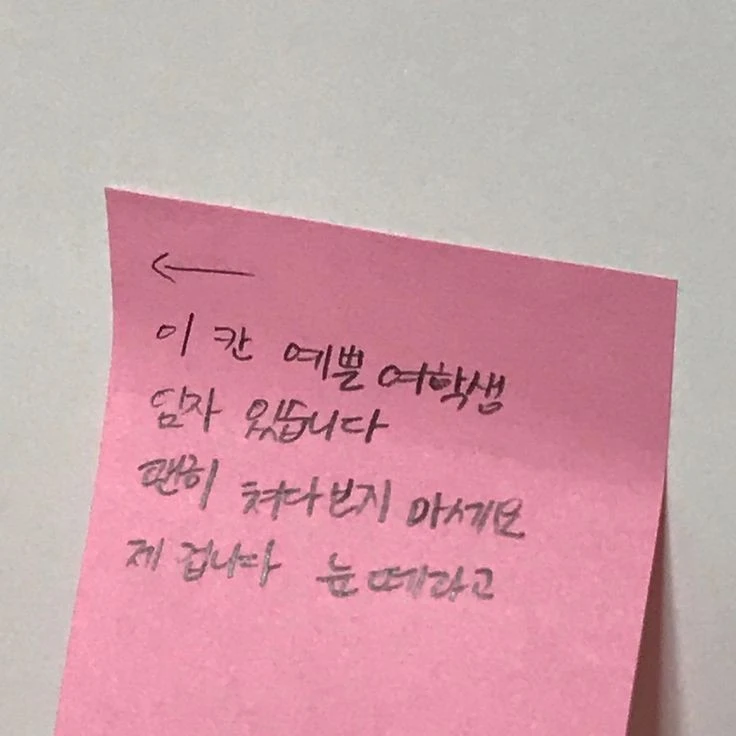 ←
이 칸 예쁠 여학생
임자 있습니다
괜히 쳐다보지 마세요
제 겁니다 눈 떼라고